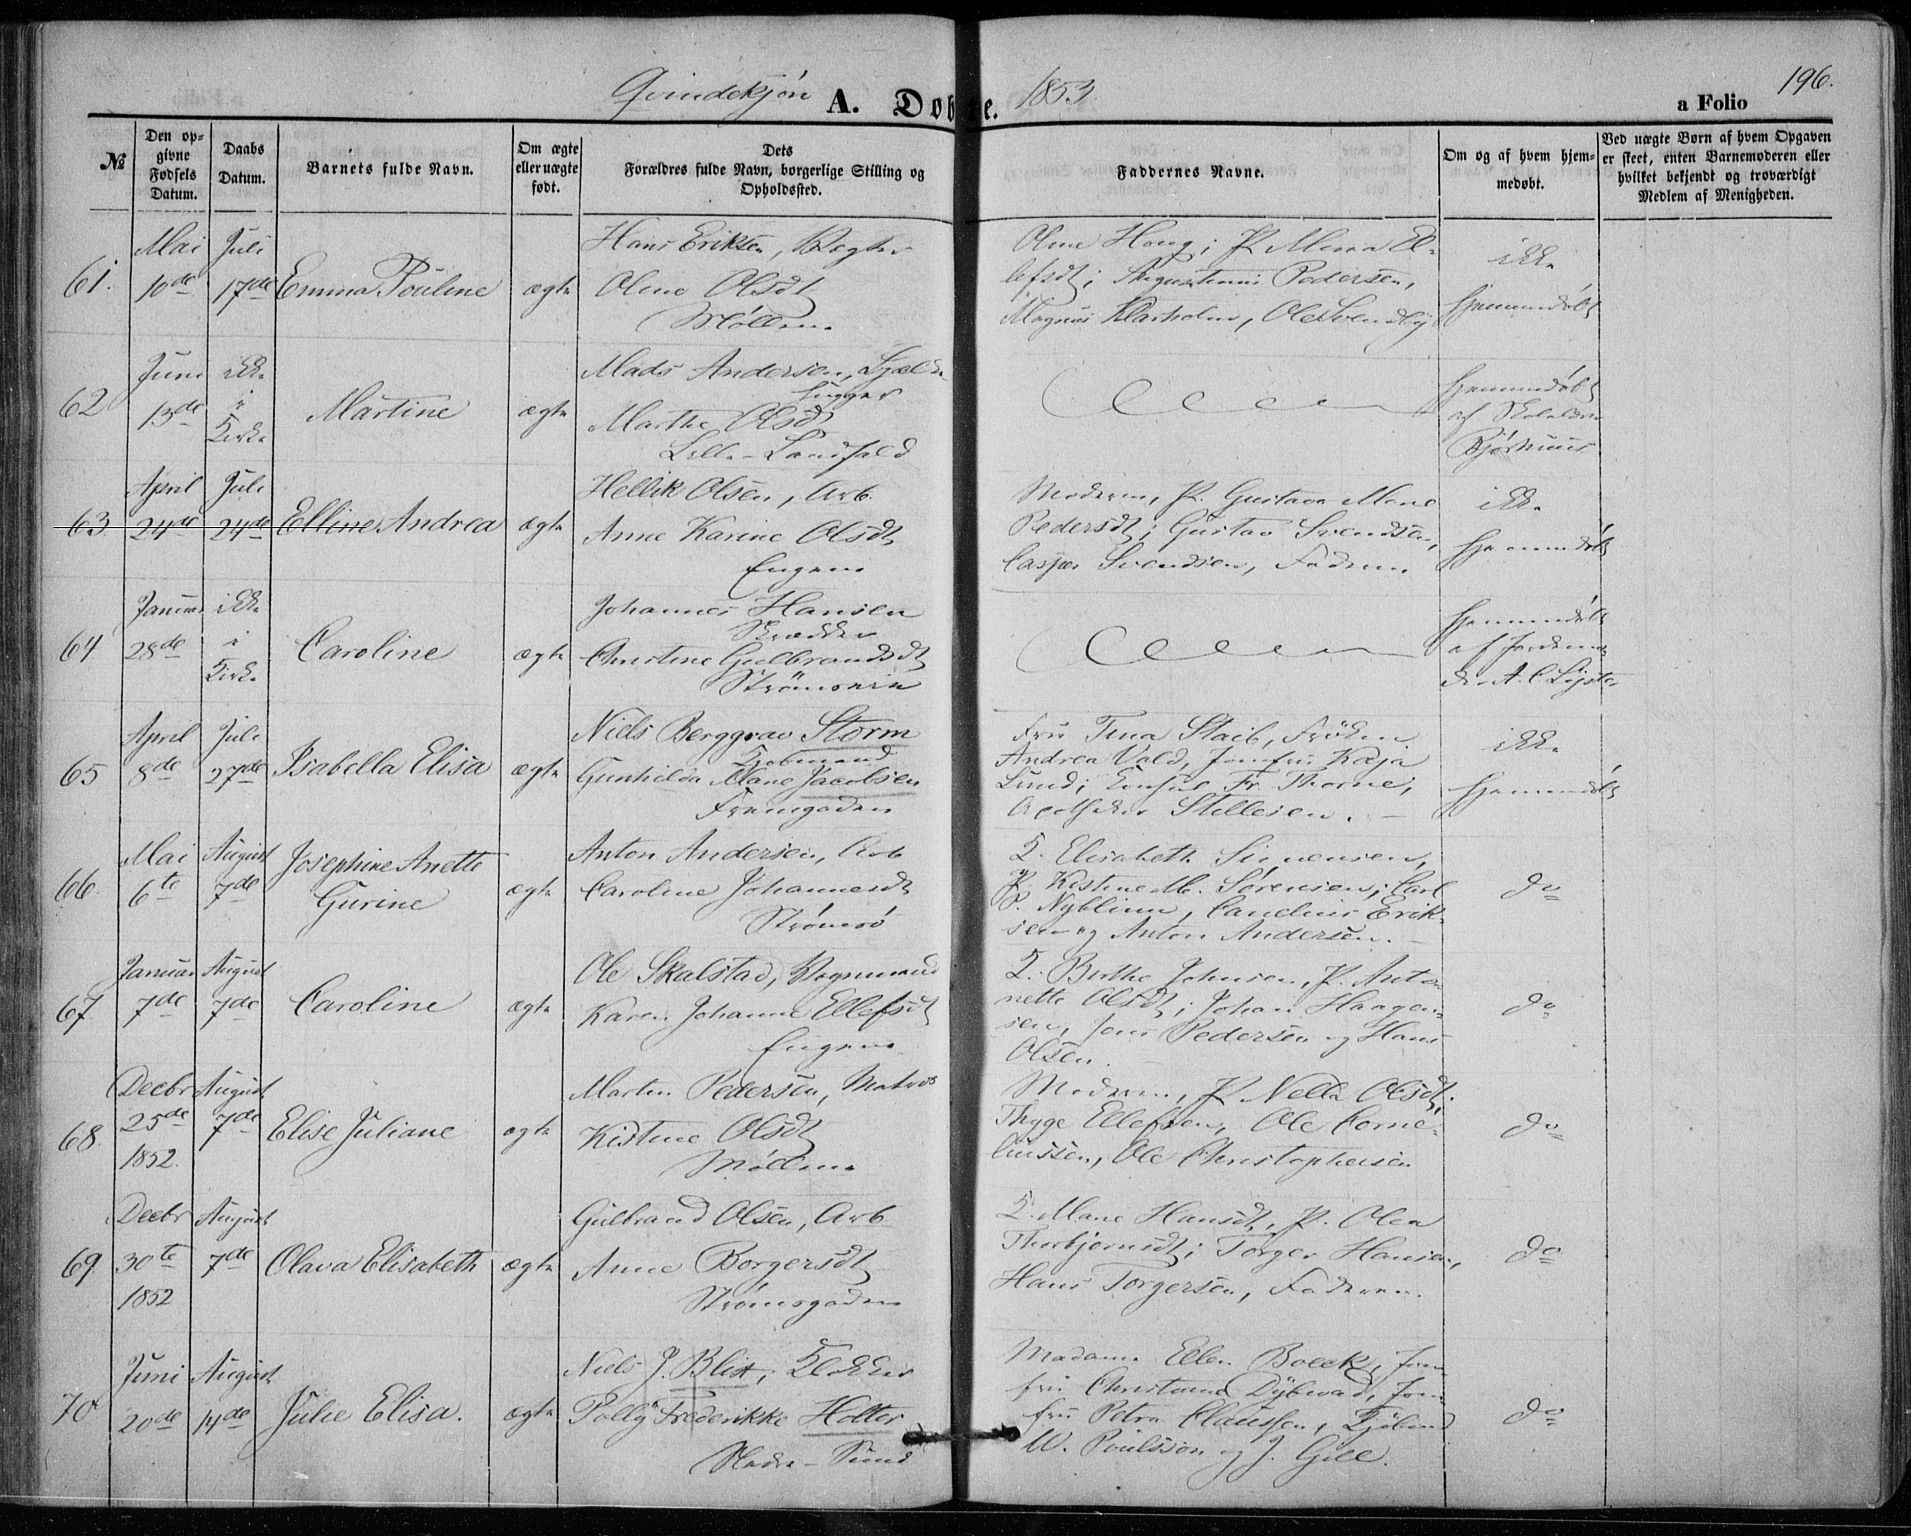 Qvindekjøn A. Døbte. 1853. a Folio 196.
№
Den opgivne Fødsels Datum.
Daabs Datum.
Barnets fulde Navn.
Om ægte eller uægte født.
Dets Forældres fulde Navn, borgerlige Stilling og Opholdssted.
Faddernes Navne.
Om og af hvem hjemmedøbt.
Ved uægte Børn af hvem Opgaven er skeet, enten Barnemoderen eller hvilket bekjendt og troværdigt Medlem af Menigheden.
61.
Mai 10de
Juli 17de
Emma Pouline
ægte
Hans Eriksen,
Oline Olsdt
Møllen
Oline Houg; P. Maren El-
lefsdt; Augustinus Pedersen,
Magnus Klarholm, Ole Svendby
ikke
hjemmedøbt
62
Juni 13de
ikke
i
Kirke
Martine
ægte
Mads Andersen,
Marthe Olsdt
Lille-Landfald
hjemmedøbt
af
63
April 24de
Juli 24de
Elline Andrea
ægte
Hellik Olsen, Arb.
Anne Karine Olsdt
Engene
Moderen, P. Gustava
Pedersdt; Gustav Svendsen,
Casper Svendsen, Faderen.
ikke
hjemmedøbt
64
Januar 28de
ikke
i
Kirke
Caroline
ægte
Johannes Hansen
Skrædder
Christine Gulbrandsdt
Strömsvein
hjemmedøbt
af Jordemo-
65
April 8de
Juli 27de
Isabella Elisa
ægte
Niels Berggrav Storm
Kjøbmand
Gunhilda Marie Jacobsen
Fremgaden
Fru Tina Staib, Fröken
Andrea Vald, Jomfru Kaja
Lund; Consul Fr. Thorne,
Apotheker Stillesen.
ikke
hjemmedøbt
66.
Mai 6te
August 7de
Josephine Anette
Gurine
ægte
Anton Andersen, Arb
Caroline Johannesdt
Strømsø
K. Elisabeth Simensen,
P. Kistine M. Sørensen; Carl
P. Nyblinn, Candius Erik-
sen og Anton Andersen.
do
67
Januar 7de
August 7de
Caroline
ægte
Ole Skalstad, Vognmand
Karen Johanne Ellefsdt
Engene
K. Birthe Johnsen, P. Anto-
nette Olsdt; Johan Haagen-
sen, Jens Pedersen og Hans
Olsen.
do
68.
Decbr 25de 1852.
August 7de
Elise Juliane
ægte
Martin Pedersen, Matros
Kistine Olsdt
Møllen
Moderen, P. Nella Olsdt.
Thyge Ellefsen, Ole Corne-
liussen, Ole Christophersen
do
69
Decbr 30te 1852
August 7de
Olava Elisabeth
ægte
Gulbrand Olsen, Arb
Anne Borgersdt
Strømsgaden
K. Maria Hansdt, P. Olea
Thorbjørnsdt; Torger Hansen,
Hans Torgersen, Faderen.
do
70
Juni 20de
August 14de
Julie Elisa.
ægte
Niels J. Blix, Klokker
Polly Frederikke Holter
Madame Ellen Boeck, Jom-
fru Christiane Dybwad, Jom-
fru Petra Claussen, Kjøbmd
W. Poulsson og J. Gill.
do